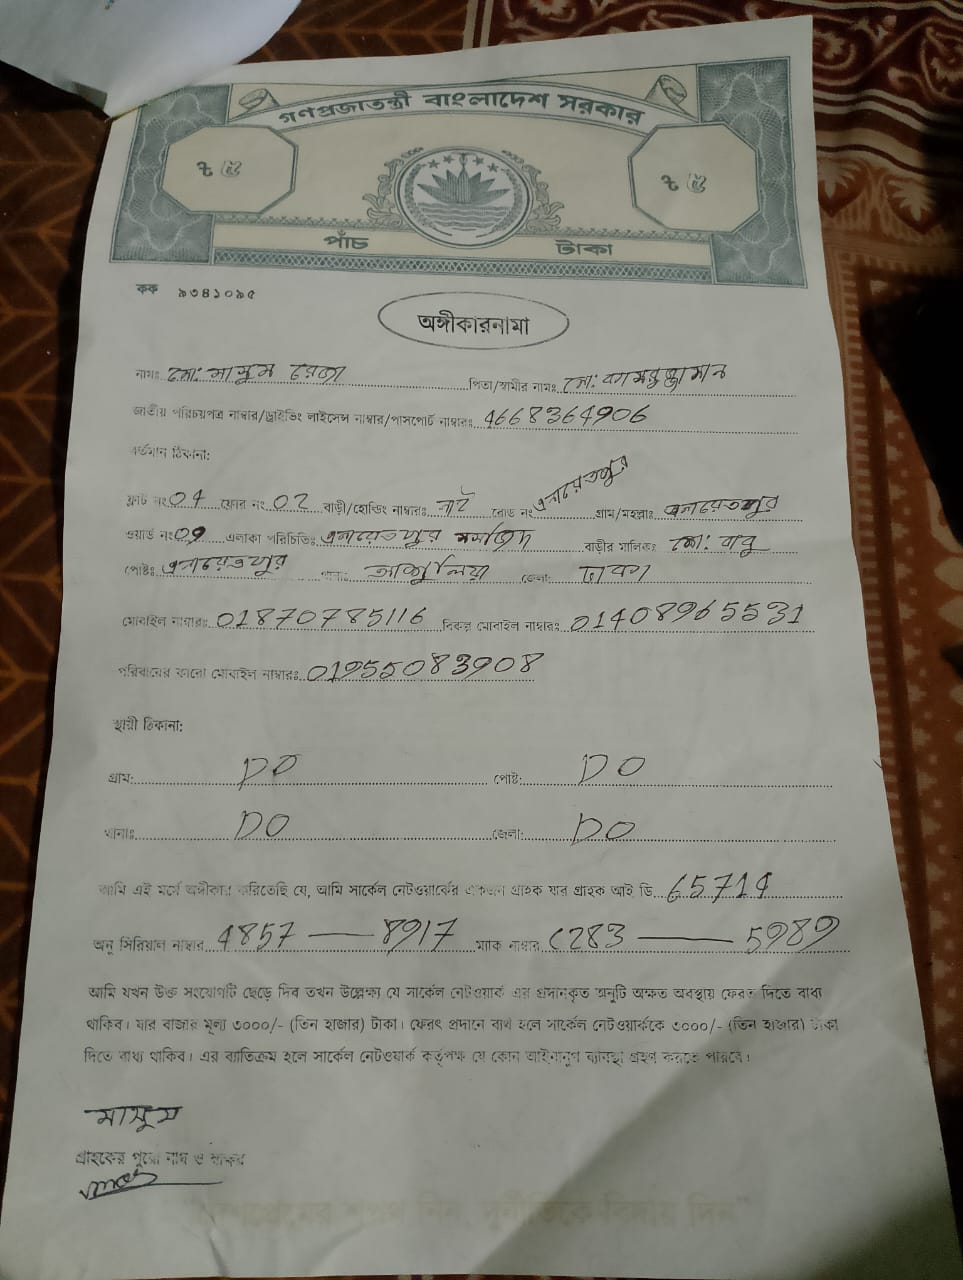 গণপ্রজাতন্ত্রী বাংলাদেশ সরকার
৳ ৫ ৳ ৫
পাঁচ টাকা
কক ৯৩৪১০৯৫
অঙ্গীকারনামা
নামঃ মো: মাসুম রেজা পিতা/স্বামীর নামঃ মো: কামরুজ্জামান
জাতীয় পরিচয়পত্র নাম্বার/ড্রাইভিং লাইসেন্স নাম্বার/পাসপোর্ট নাম্বারঃ 4668364906
বর্তমান ঠিকানা:
ফ্লাট নং 04 ফ্লোর নং 02 বাড়ী/হোল্ডিং নাম্বারঃ নাই রোড নং এনায়েতপুর গ্রাম/মহল্লাঃ এনায়েতপুর
ওয়ার্ড নং 09 এলাকা পরিচিতিঃ এনায়েতপুর মসজিদ বাড়ীর মালিকঃ মো: বাবু
পোষ্টঃ এনায়েতপুর থানাঃ আশুলিয়া জেলা: ঢাকা
মোবাইল নাম্বারঃ 01870785116 বিকল্প মোবাইল নাম্বারঃ 01408965531
পরিবারের কারো মোবাইল নাম্বারঃ 01955083908
স্থায়ী ঠিকানা:
গ্রাম: DO পোষ্ট: DO
থানাঃ DO জেলা: DO
আমি এই মর্মে অঙ্গীকার করিতেছি যে, আমি সার্কেল নেটওয়ার্কের একজন গ্রাহক যার গ্রাহক আই ডি 65714
অনু সিরিয়াল নাম্বার 4857 — 8917 ম্যাক নাম্বার C283 — 5989
আমি যখন উক্ত সংযোগটি ছেড়ে দিব তখন উল্লেক্ষ্য যে সার্কেল নেটওয়ার্ক এর প্রদানকৃত অনুটি অক্ষত অবস্থায় ফেরত দিতে বাধ্য
থাকিব। যার বাজার মূল্য ৩০০০/- (তিন হাজার) টাকা। ফেরৎ প্রদানে ব্যর্থ হলে সার্কেল নেটওয়ার্ককে ৩০০০/- (তিন হাজার) টাকা
দিতে বাধ্য থাকিব। এর ব্যতিক্রম হলে সার্কেল নেটওয়ার্ক কর্তৃপক্ষ যে কোন আইনানুগ ব্যাবস্থা গ্রহণ করতে পারবে।
মাসুম
গ্রাহকের পুরো নাম ও স্বাক্ষর